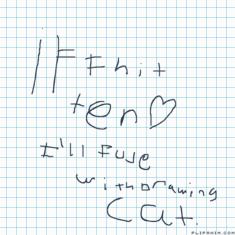 IF I hit
ten♡
I'll fuse
withdrawing
cat.
FLIPANIM.COM